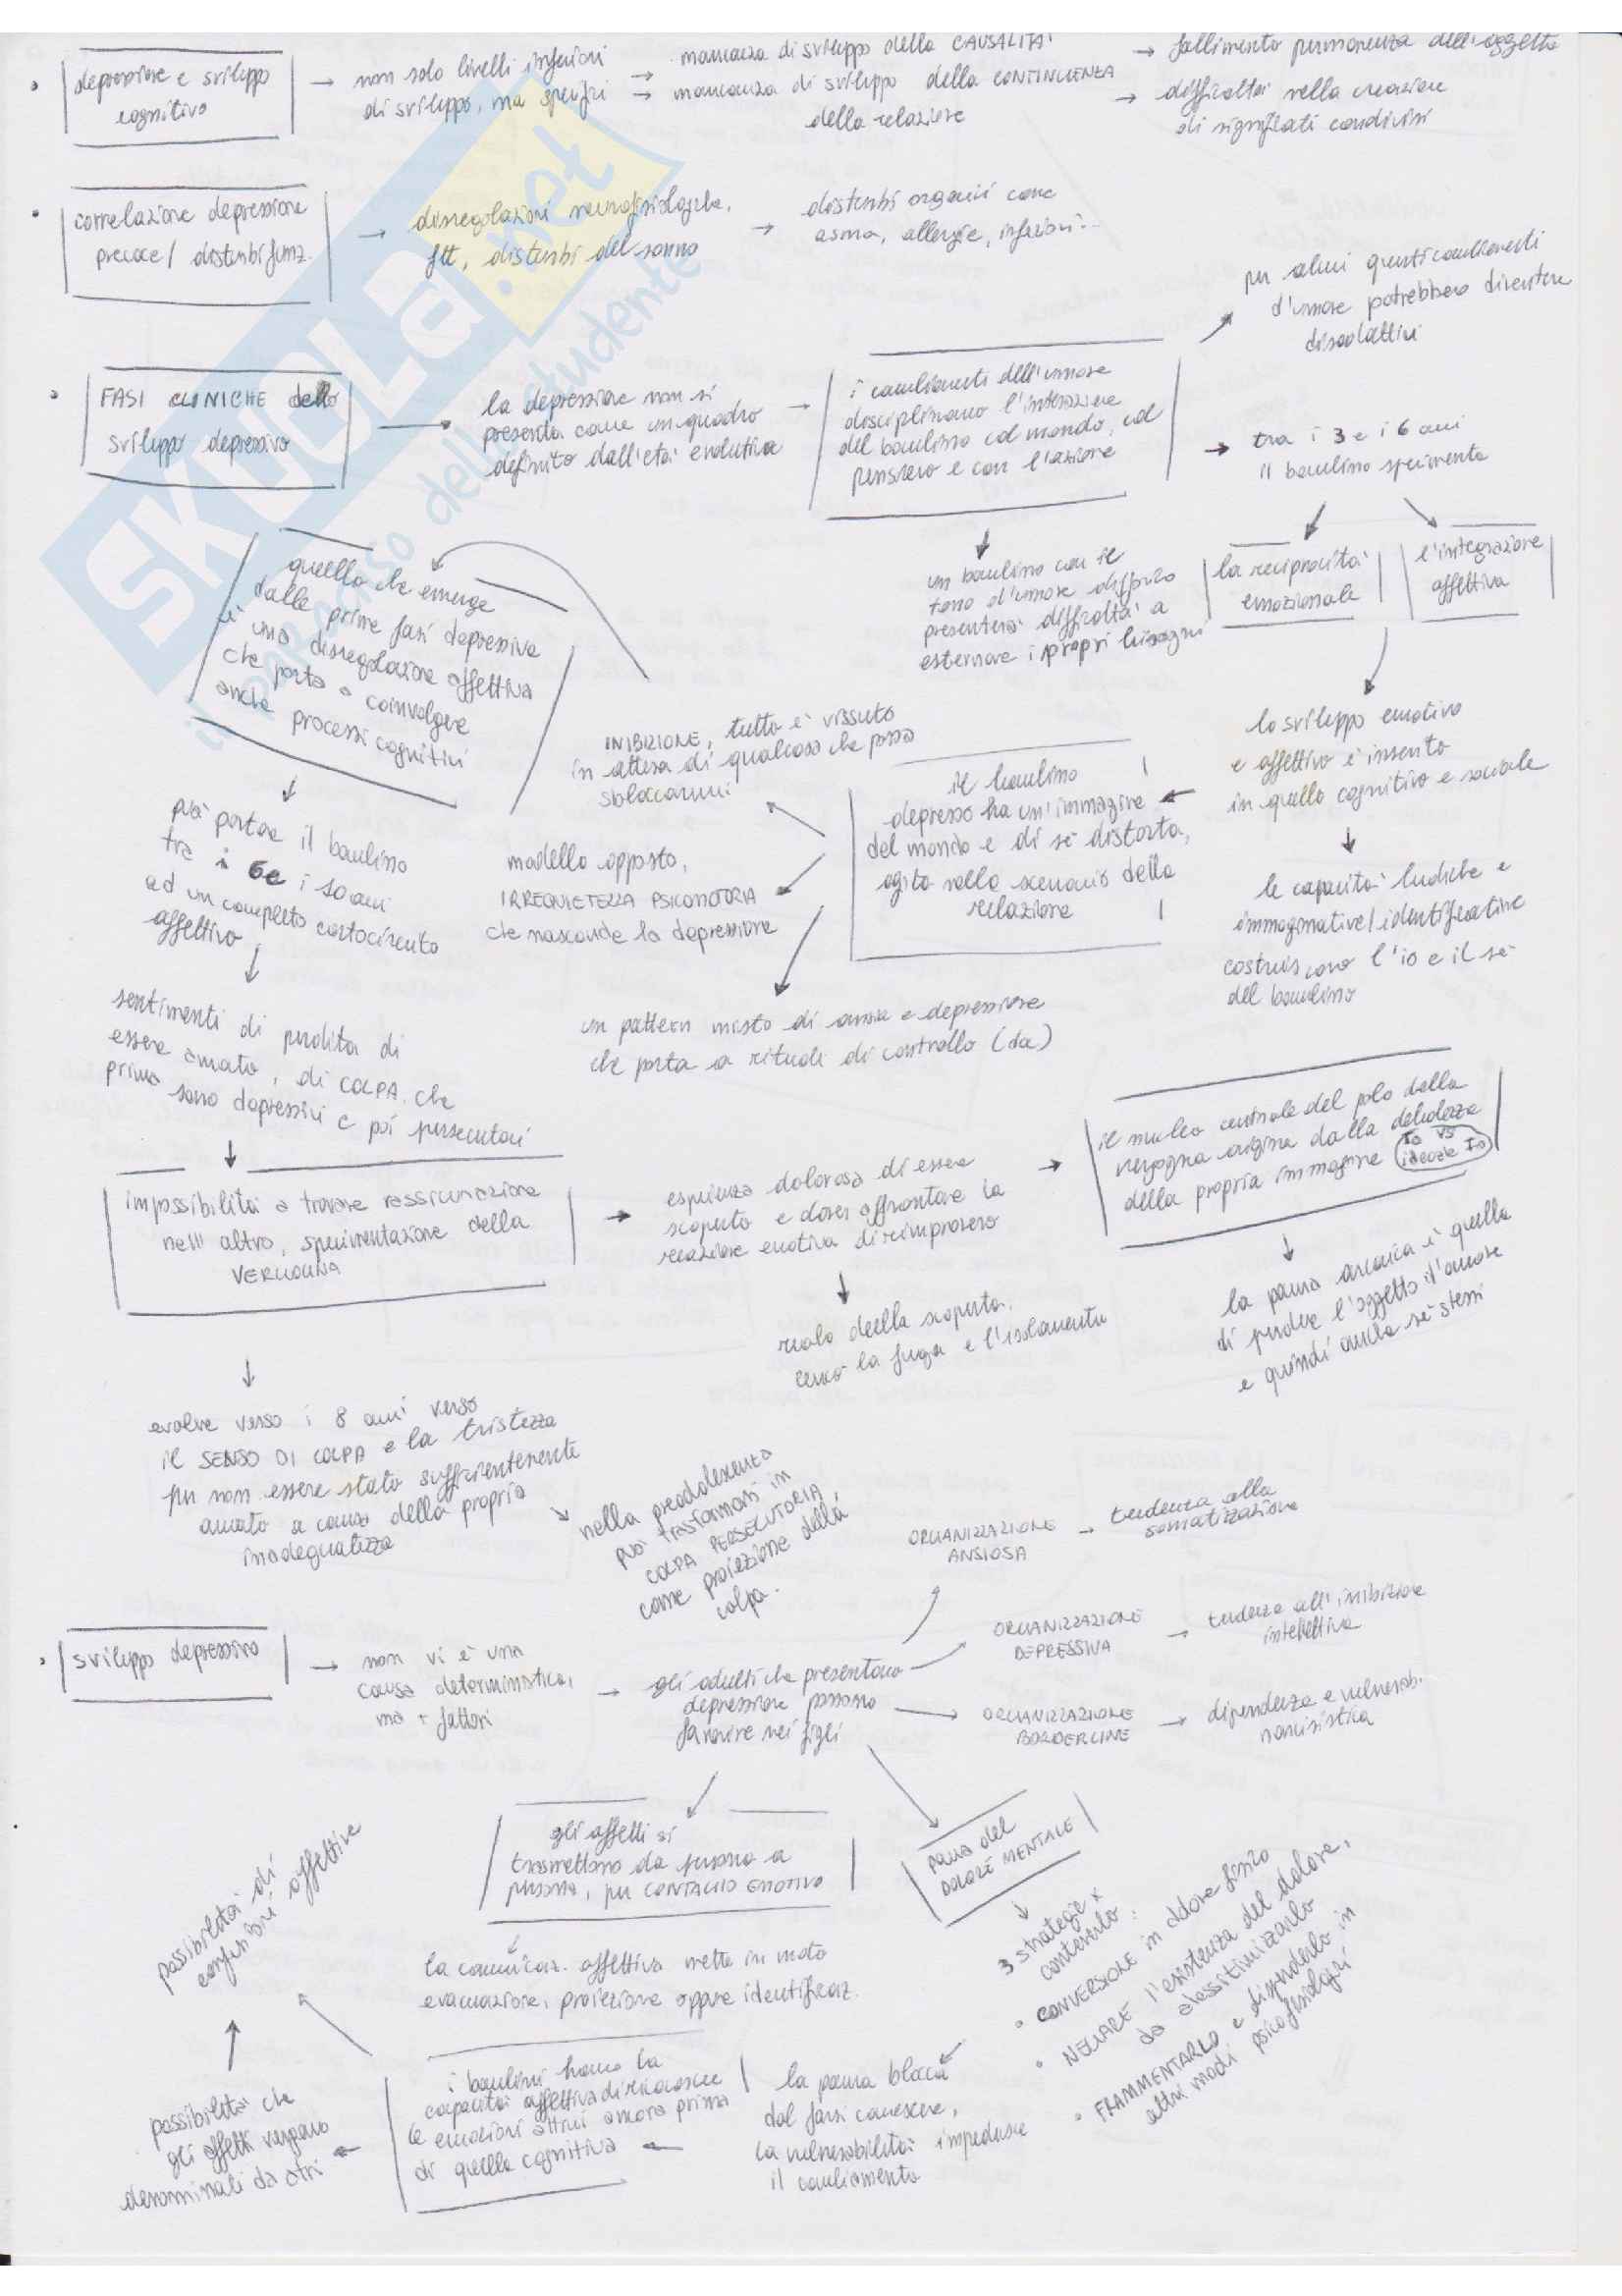 depressione e sviluppo
cognitivo
non solo livelli inferiori
di sviluppo, ma specifici
mancanza di sviluppo della CAUSALITA'
mancanza di sviluppo della CONTINGENZA
della relazione
fallimento permanenza dell'oggetto
difficoltà nella creazione
di significati condivisi
correlazione depressione
precoce / disturbi funz.
disregolazioni neurofisiologiche,
es, disturbi del sonno
disturbi organici come
asma, allergie, infezioni...
FASI CLINICHE dello
sviluppo depressivo
la depressione non si
presenta come un quadro
definito dall'età evolutiva
i cambiamenti dell'umore
disciplinano l'interazione
del bambino col mondo, col
pensiero e con l'azione
per alcuni questi cambiamenti
d'umore potrebbero diventare
disadattivi
tra i 3 e i 6 anni
il bambino sperimenta
la reciprocità
emozionale
l'integrazione
affettiva
un bambino con il
tono d'umore disforico
presenterà difficoltà a
esternare i propri bisogni
quello che emerge
dalle prime fasi depressive
è una disregolazione affettiva
che porta a coinvolgere
anche processi cognitivi
INIBIZIONE, tutto è vissuto
in attesa di qualcosa che possa
sbloccarmi
lo sviluppo emotivo
e affettivo è inserito
in quello cognitivo e sociale
il bambino
depresso ha un'immagine
del mondo e di sé distorta,
agita nello scenario della
relazione
può portare il bambino
tra i 6 e i 10 anni
ad un completo cortocircuito
affettivo
modello opposto,
IRREQUIETEZZA PSICOMOTORIA
che nasconde la depressione
le capacità ludiche e
immaginative/identificative
costruiscono l'io e il sé
del bambino
un pattern misto di ansia e depressione
che porta a rituali di controllo (doc)
sentimenti di perdita di
essere amato, di COLPA, che
prima sono depressivi e poi persecutori
impossibilità a trovare rassicurazione
nell'altro, sperimentazione della
VERGOGNA
esperienza dolorosa di essere
scoperto e dover affrontare la
reazione emotiva di rimprovero
il nucleo centrale del polo della
vergogna origina dalla debolezza
della propria immagine
Io vs
ideale Io
reale della scoperta,
cerco la fuga e l'isolamento
la paura arcaica è quella
di perdere l'oggetto d'amore
e quindi anche sé stessi
evolve verso i 8 anni verso
il SENSO DI COLPA e la tristezza
per non essere stato sufficientemente
amato a causa della propria
inadeguatezza
nella preadolescenza
può trasformarsi in
COLPA PERSECUTORIA,
come proiezione della
colpa.
sviluppo depressivo
non vi è una
causa deterministica,
ma + fattori
gli adulti che presentano
depressione possono
favorire nei figli
ORGANIZZAZIONE
ANSIOSA
tendenza alla
somatizzazione
ORGANIZZAZIONE
DEPRESSIVA
tendenza all'inibizione
intellettiva
ORGANIZZAZIONE
BORDERLINE
dipendenza e vulnerab.
narcisistica
gli affetti si
trasmettono da persona a
persona, per CONTAGIO EMOTIVO
paura del
DOLORE MENTALE
3 strategie x
contenerlo:
CONVERSIONE in dolore fisico
NEGARE l'esistenza del dolore,
da alessitimizzarlo
FRAMMENTARLO e disperderlo in
altri modi psicofisiologici
la comunicaz. affettiva mette in moto
evacuazione, proiezione oppure identificaz.
possibilità di
confusioni affettive
i bambini hanno la
capacità affettiva di riconoscere
le emozioni altrui ancora prima
di quella cognitiva
la paura blocca
dal farsi conoscere,
la vulnerabilità impedisce
il cambiamento
possibilità che
gli affetti vengano
denominati da altri
SKUOLA.net
il paradiso dello studente